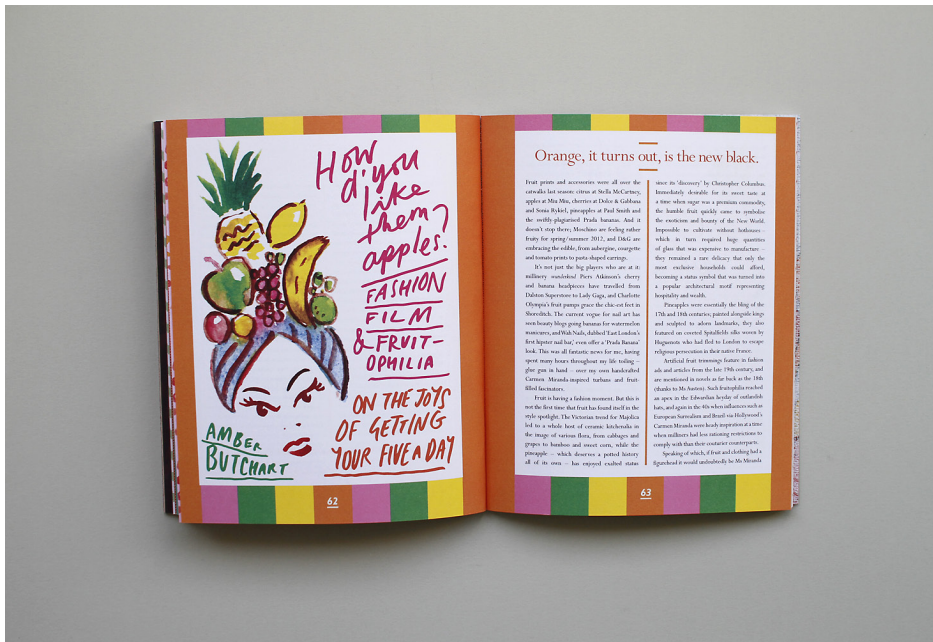 How
d'you
like
them
apples?
FASHION
FILM
& FRUIT-
OPHILIA
ON THE JOYS
OF GETTING
YOUR FIVE A DAY
AMBER
BUTCHART
62
Orange, it turns out, is the new black.
Fruit prints and accessories were all over the
catwalks last season: citrus at Stella McCartney,
apples at Miu Miu, cherries at Dolce & Gabbana
and Sonia Rykiel, pineapples at Paul Smith and
the swiftly-plagiarised Prada bananas. And it
doesn't stop there; Moschino are feeling rather
fruity for spring/summer 2012, and D&G are
embracing the edible, from aubergine, courgette
and tomato prints to pasta-shaped earrings.
It's not just the big players who are at it:
millinery wunderkind Piers Atkinson's cherry
and banana headpieces have travelled from
Dalston Superstore to Lady Gaga, and Charlotte
Olympia's fruit pumps grace the chic-est feet in
Shoreditch. The current vogue for nail art has
seen beauty blogs going bananas for watermelon
manicures, and Wah Nails, dubbed 'East London's
first hipster nail bar,' even offer a 'Prada Banana'
look. This was all fantastic news for me, having
spent many hours throughout my life toiling –
glue gun in hand – over my own handcrafted
Carmen Miranda-inspired turbans and fruit-
filled fascinators.
Fruit is having a fashion moment. But this is
not the first time that fruit has found itself in the
style spotlight. The Victorian trend for Majolica
led to a whole host of ceramic kitchenalia in
the image of various flora, from cabbages and
grapes to bamboo and sweet corn, while the
pineapple – which deserves a potted history
all of its own – has enjoyed exalted status
since its 'discovery' by Christopher Columbus.
Immediately desirable for its sweet taste at
a time when sugar was a premium commodity,
the humble fruit quickly came to symbolise
the exoticism and bounty of the New World.
Impossible to cultivate without hothouses –
which in turn required huge quantities
of glass that was expensive to manufacture –
they remained a rare delicacy that only the
most exclusive households could afford,
becoming a status symbol that was turned into
a popular architectural motif representing
hospitality and wealth.
Pineapples were essentially the bling of the
17th and 18th centuries; painted alongside kings
and sculpted to adorn landmarks, they also
featured on coveted Spitalfields silks woven by
Huguenots who had fled to London to escape
religious persecution in their native France.
Artificial fruit trimmings feature in fashion
ads and articles from the late 19th century, and
are mentioned in novels as far back as the 18th
(thanks to Ms Austen). Such fruitophilia reached
an apex in the Edwardian heyday of outlandish
hats, and again in the 40s when influences such as
European Surrealism and Brazil via Hollywood's
Carmen Miranda were heady inspiration at a time
when milliners had less rationing restrictions to
comply with than their couturier counterparts.
Speaking of which, if fruit and clothing had a
figurehead it would undoubtedly be Ms Miranda
63